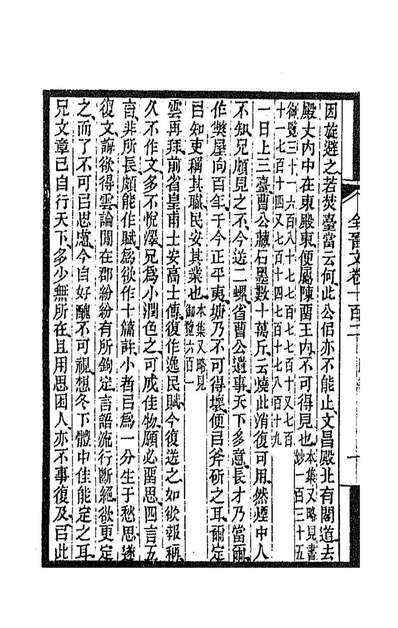 因旋避之若焚臺當云何此公但亦不能止文昌殿北有閣道去
殿丈內中在東殿東便屬陳留王內不可得見也本集又略見書鈔一百三十五
御覽三十一六百八十七七百七十又七百十一七百十四又七百十四七百七十八七百十九
一日上三臺曹公藏石墨數十萬斤云燒此消復可用然煙中人
不知兄頗見之不今送二螺省曹公遺事天下多意長才乃當爾
作弊屋向百年于今正平夷塘乃不可得壞便㠯斧斫之耳爾定
㠯知吏稱其職民安其業也本集又略見御覽六百一
雲再拜前省皇甫士安高士傳復作逸民賦今復送之如欲報稱
久不作文多不悅澤兄爲小潤色之可成佳物願必留思四言五
言非所長頗能作賦爲欲作十篇許小者㠯爲一分生于愁思遂
復文誨欲得雲論閒在郡紛紛有所鉤定言語流行斷絕欲更定
之而了不可㠯思慮今自好醜不可視想冬下體中佳能定之耳
兄文章已自行天下多少無所在且用思困人亦不事復及㠯此
全晉文卷一百二